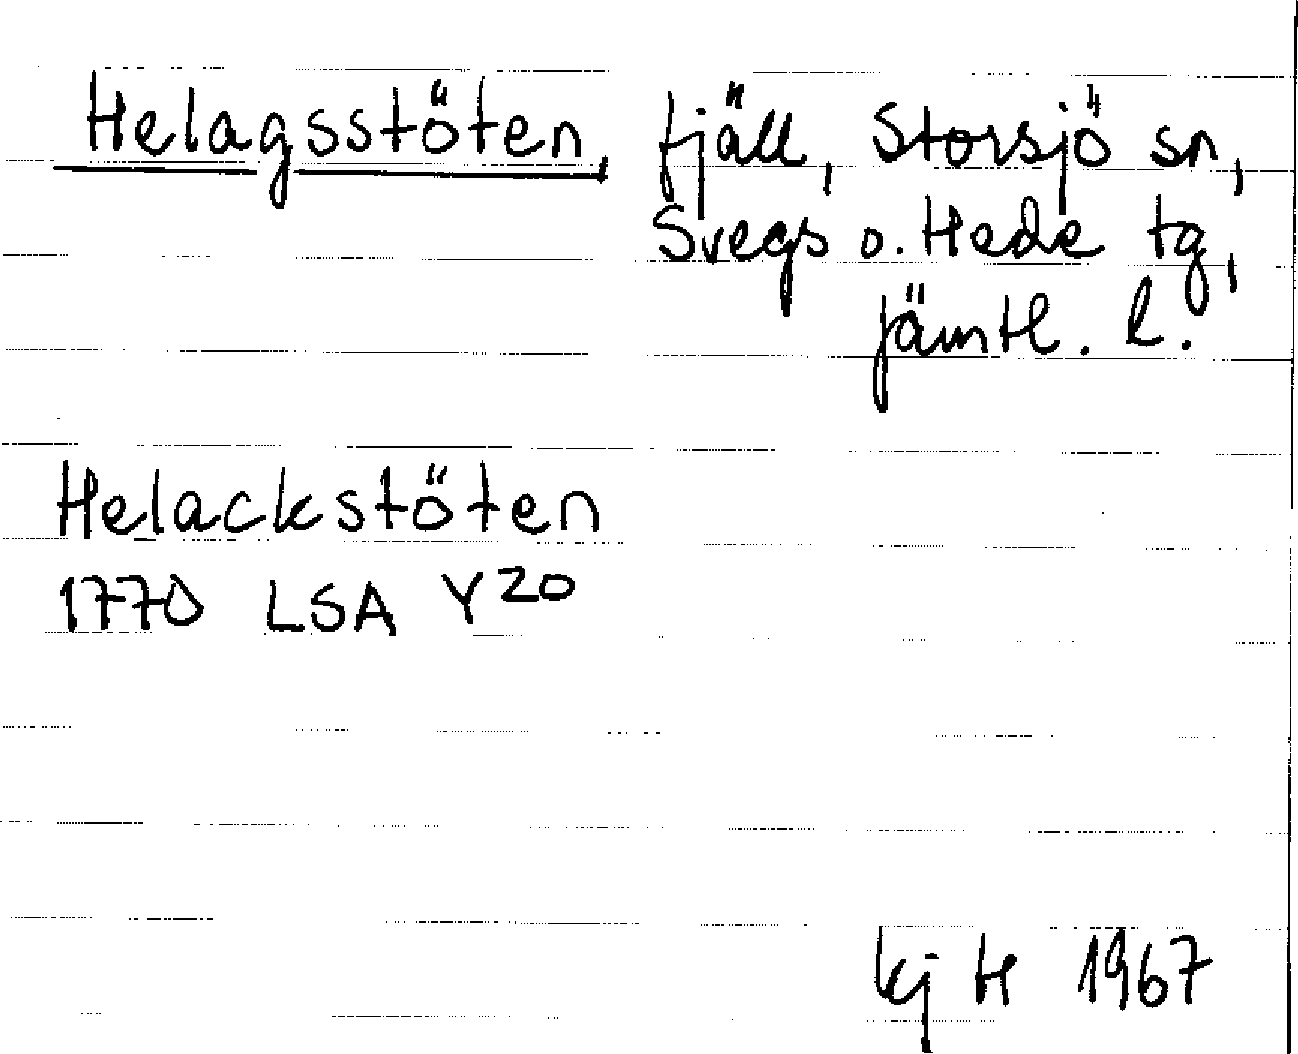 Helagsstöten, fjäll, Storsjö sn,
Svegs o. Hede tg,
Jämtl. l.
Helackstöten
1770 LSA Y20
kj H 1967